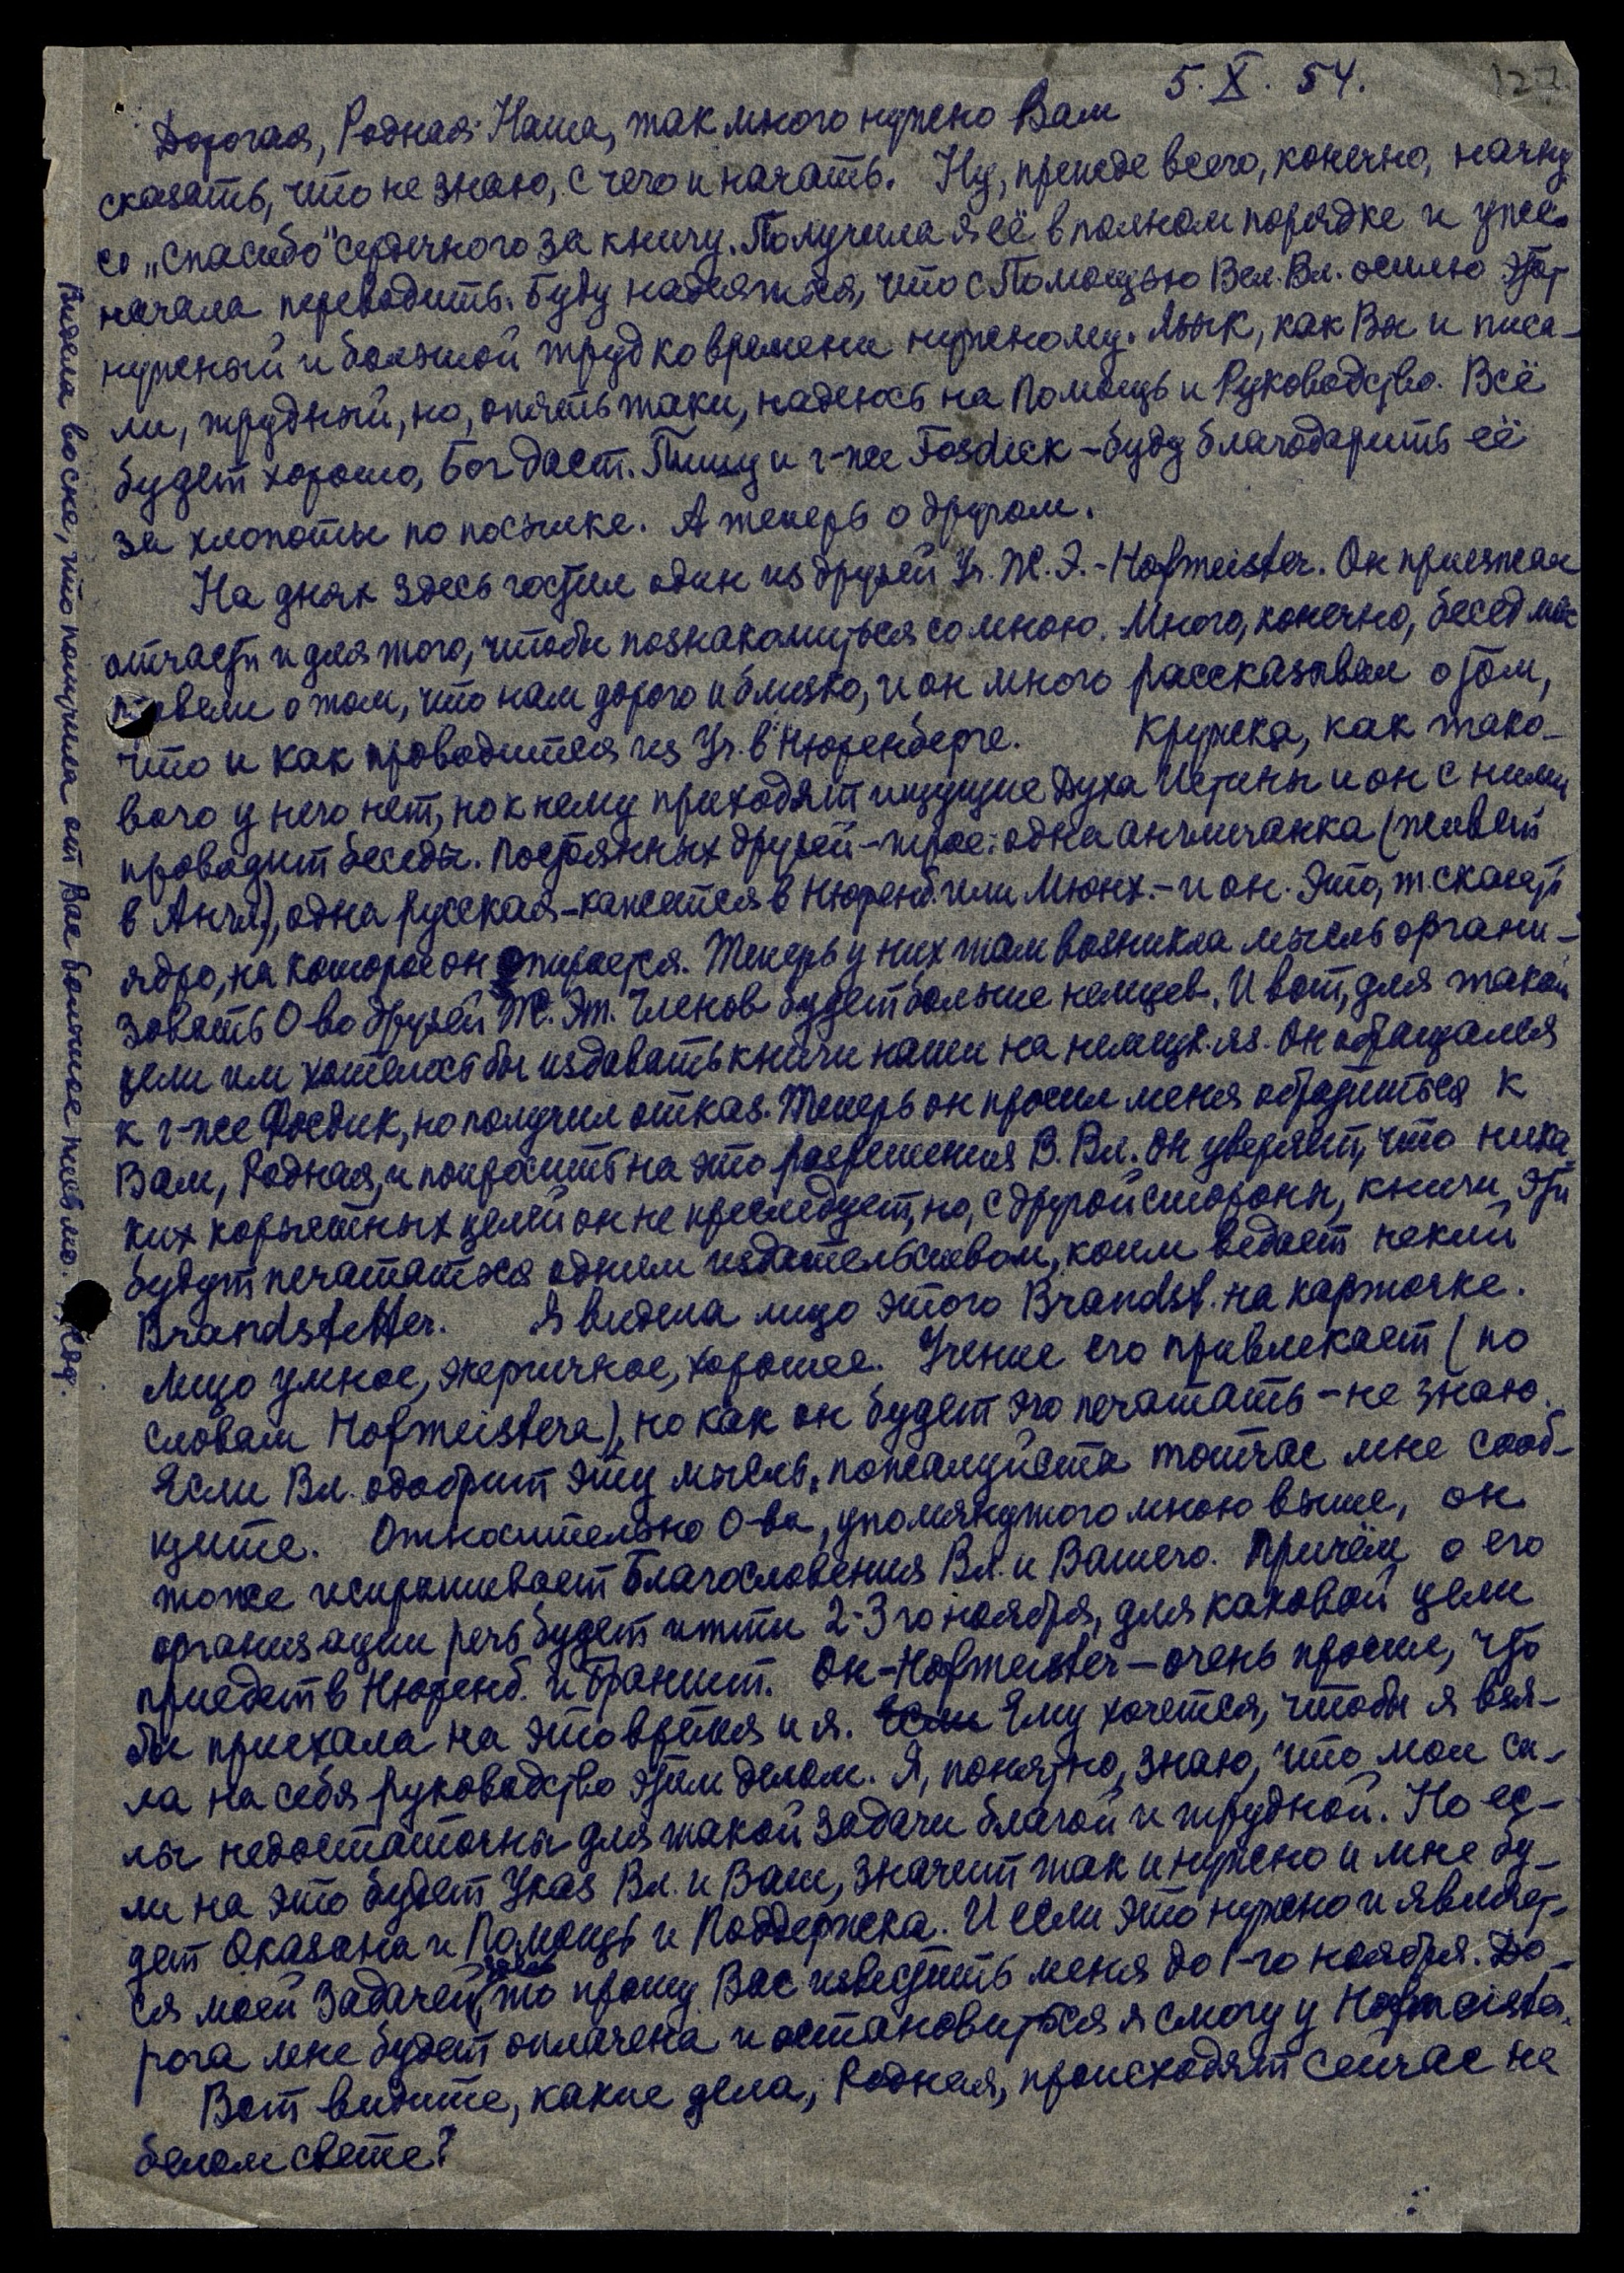 127
5. X. 54.
Дорогая, Родная Наша, так много нужно Вам
сказать, что не знаю, с чего и начать. Ну, прежде всего, конечно, начну
со „спасибо" сердечного за книгу. Получила я её в полном порядке и уже
начала переводить. Буду надеяться, что с Помощью Вел. Вл. осилю этот
нужный и большой труд ко времени нужному. Язык, как Вы и писа-
ли, трудный, но, опять таки, надеюсь на Помощь и Руководство. Всё
будет хорошо, Бог даст. Пишу и г-же Fosdick – буду благодарить её
за хлопоты по посылке. А теперь о другом.
На днях здесь гостил один из друзей Уч. Ж. Э. – Hofmeister. Он приезжал
отчасти и для того, чтобы познакомиться со мною. Много, конечно, бесед мы
провели о том, что нам дорого и близко, и он много рассказывал о том,
что и как проводится из Уч. в Нюренберге. Кружка, как тако-
вого у него нет, но к нему приходят ищущие Духа Истины и он с ними
проводит беседы. Постоянных друзей – трое: одна англичанка (живет
в Англ.), одна русская – кажется в Нюренб. или Мюнх. – и он. Это, т. сказать
ядро, на которое он опирается. Теперь у них там возникла мысль органи-
зовать О-во друзей Ж. Эт. Членов будет больше немцев. И вот, для такой
цели им хотелось бы издавать книги наши на немецк. яз. Он обращался
к г-же Фосдик, но получил отказ. Теперь он просил меня обратиться к
Вам, Родная, и попросить на это разрешения В. Вл. Он уверяет, что ника-
ких корыстных целей он не преследует, но, с другой стороны, книги эти
будут печататься одним издательством, коим ведает некий
Brandstetter. Я видела лицо этого Brandst. на карточке.
Лицо умное, энергичное, хорошее. Учение его привлекает (по
словам Hofmeistera), но как он будет это печатать – не знаю.
Если Вл. одобрит эту мысль, пожалуйста тотчас мне сооб-
щите. Относительно О-ва, упомянутого мною выше, он
тоже испрашивает Благословения Вл. и Вашего. Причём о его
организации речь будет итти 2-3го ноября, для каковой цели
приедет в Нюренб. и Браншт. Он – Hofmeister – очень просил, что
бы приехала на это время и я. Если Ему хочется, чтобы я взя-
ла на себя руководство этим делом. Я, понятно, знаю, что мои си-
лы недостаточны для такой задачи благой и трудной. Но ес-
ли на это будет Указ Вл. и Ваш, значит так и нужно и мне бу-
дет Оказана и Помощь и Поддержка. И если это нужно и являет-
ся моей Задачей, то прошу Вас известить меня до 1-го ноября. До-
рога мне будет оплачена и остановиться я смогу у Hofmeister.
Вот видите, какие дела, Родная, происходят сейчас на
белом свете?
Видела во сне, что получила от Вас большое письмо.